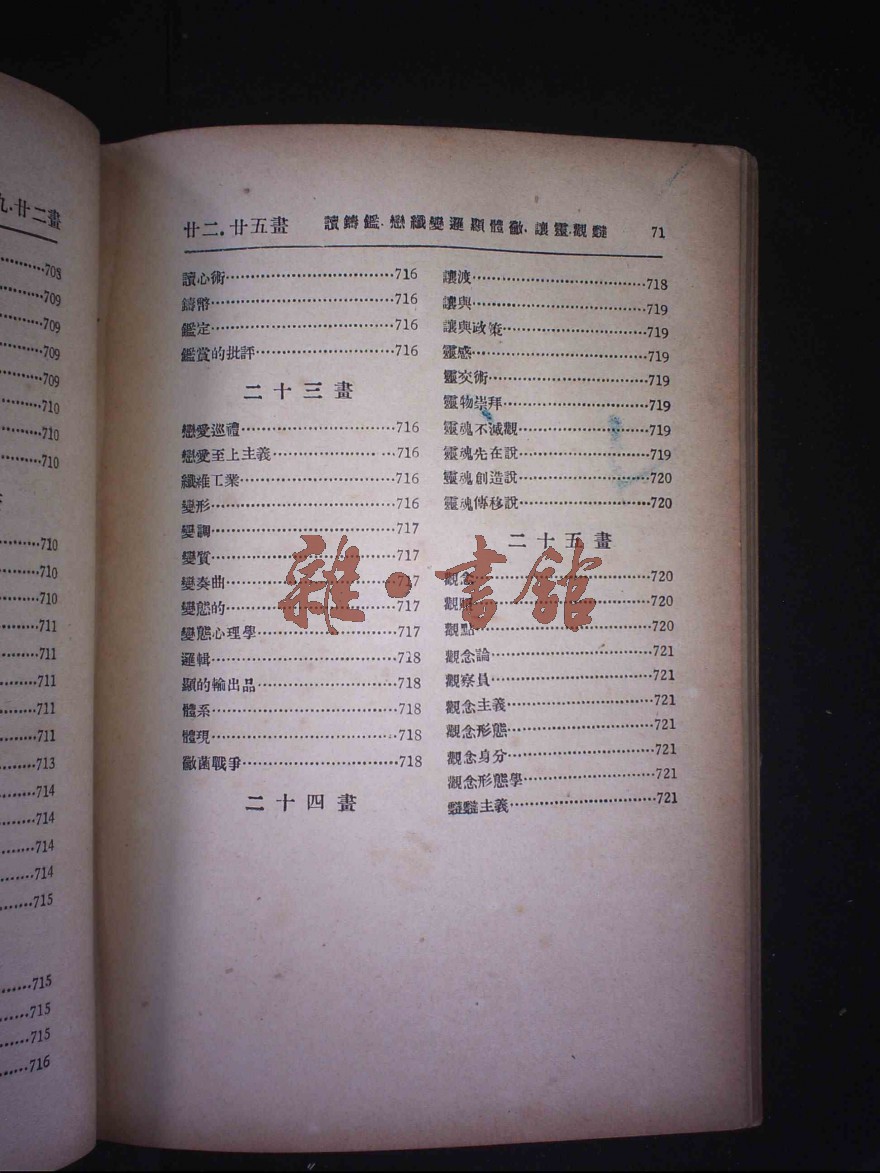 九·廿二畫
708
709
709
709
709
710
710
710
710
710
710
711
711
711
711
711
713
714
714
714
714
715
715
715
715
716
廿二·廿五畫 讀鑄鑑·戀纖變邏顯體黴·讓靈·觀 71
讀心術 716
鑄幣 716
鑑定 716
鑑賞的批評 716
二十三畫
戀愛巡禮 716
戀愛至上主義 716
纖維工業 716
變形 716
變調 717
變質 717
變奏曲 717
變態的 717
變態心理學 717
邏輯 718
顯的輸出品 718
體系 718
體現 718
黴菌戰爭 718
二十四畫
讓渡 718
讓與 719
讓與政策 719
靈感 719
靈交術 719
靈物崇拜 719
靈魂不滅觀 719
靈魂先在說 719
靈魂創造說 720
靈魂傳移說 720
二十五畫
觀念 720
觀照 720
觀點 720
觀念論 721
觀察員 721
觀念主義 721
觀念形態 721
觀念身分 721
觀念形態學 721
主義 721
雜·書館